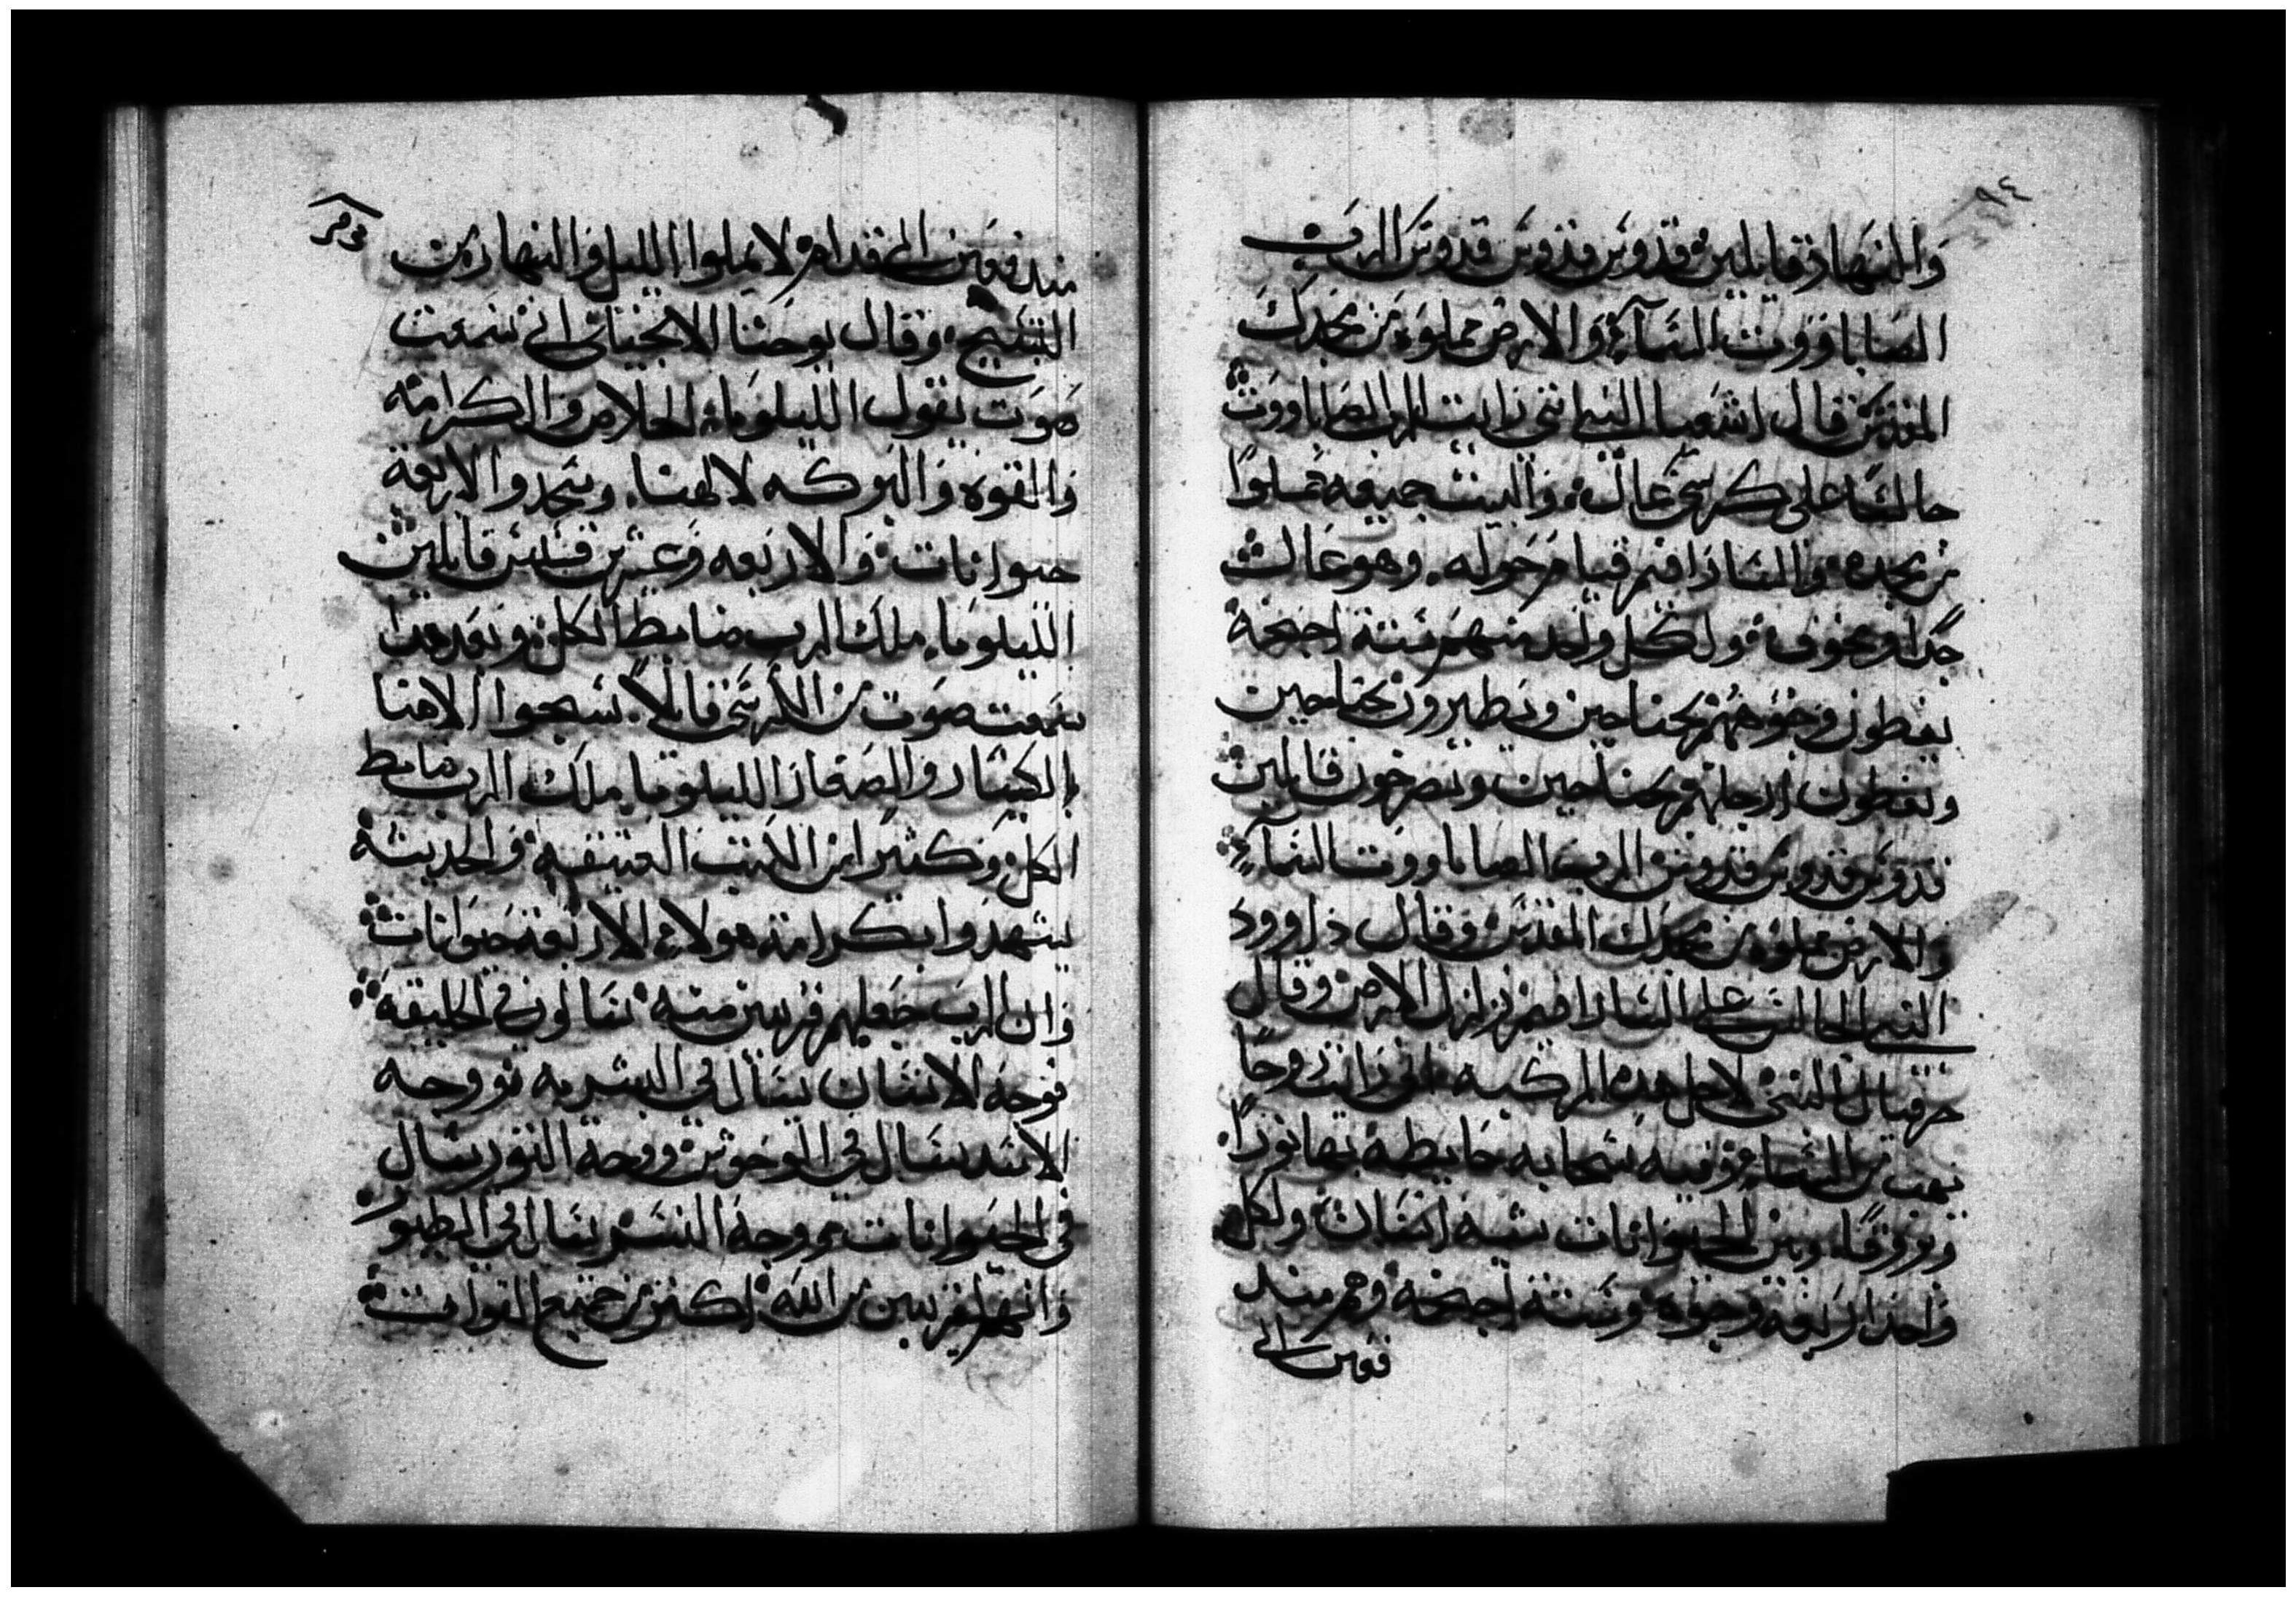 ٩٤
والنهار قايلين قدوس قدوس قدوس الرب
الصاباووت السماء والارض مملوه من مجدك
المقدس قال اشعيا النبي انني رايت الرب الصاباووت
جالسًا على كرسي عال والبيت جميعه مملوا
من مجده والسارافيم قيام حوله وهو عال
جدا ومخوف ولكل واحد منهم ستة اجنحة
يغطون وجوههم بجناحين ويطيرون بجناحين
ويغطون ارجلهم بجناحين ويصرخون قايلين
قدوس قدوس قدوس الرب الصاباووت السماء
والارض مملوه من مجدك المقدس وقال داوود
النبي الجالس على السارافيم تزلزل الارض وقال
حزقيال النبي لاجل هذه المركبه اني رايت روحًا
تهب من السماء وفيه سحابه محايطه بها نورًا
وبروقًا وبين الحيوانات شبه انسان ولكل
واحد اربعة وجوه وستة اجنحة وهم مند
فعين الى
مندفعين الى قدام لا يملوا الليل والنهار من
التسبيح وقال يوحنا الانجيلي اني سمعت
صوت يقول الليلويا الخلاص والكرامه
والقوه والبركه لالهنا ويسجدوا الاربعة
حيوانات والاربعه وعشرين قسيس قايلين
الليلويا ملك الرب ضابط الكل وبعد هذا
سمعت صوت من الكرسي قايلاً سبحوا الاهنا
يا الكبار والصغار الليلويا ملك الرب ضابط
الكل وكثير من الكتب العتيقه والحديثه
يشهدوا بكرامة هولاء الاربعة حيوانات
وان الرب جعلهم قريبين منه يسالون في الخليقه
فوجه الانسان يسال في البشريه ووجه
الاسد يسال في الوحوش ووجه الثور يسال
في الحيوانات ووجه النسر يسال في الطيور
وانهم قريبين من الله اكتر من جميع القوات